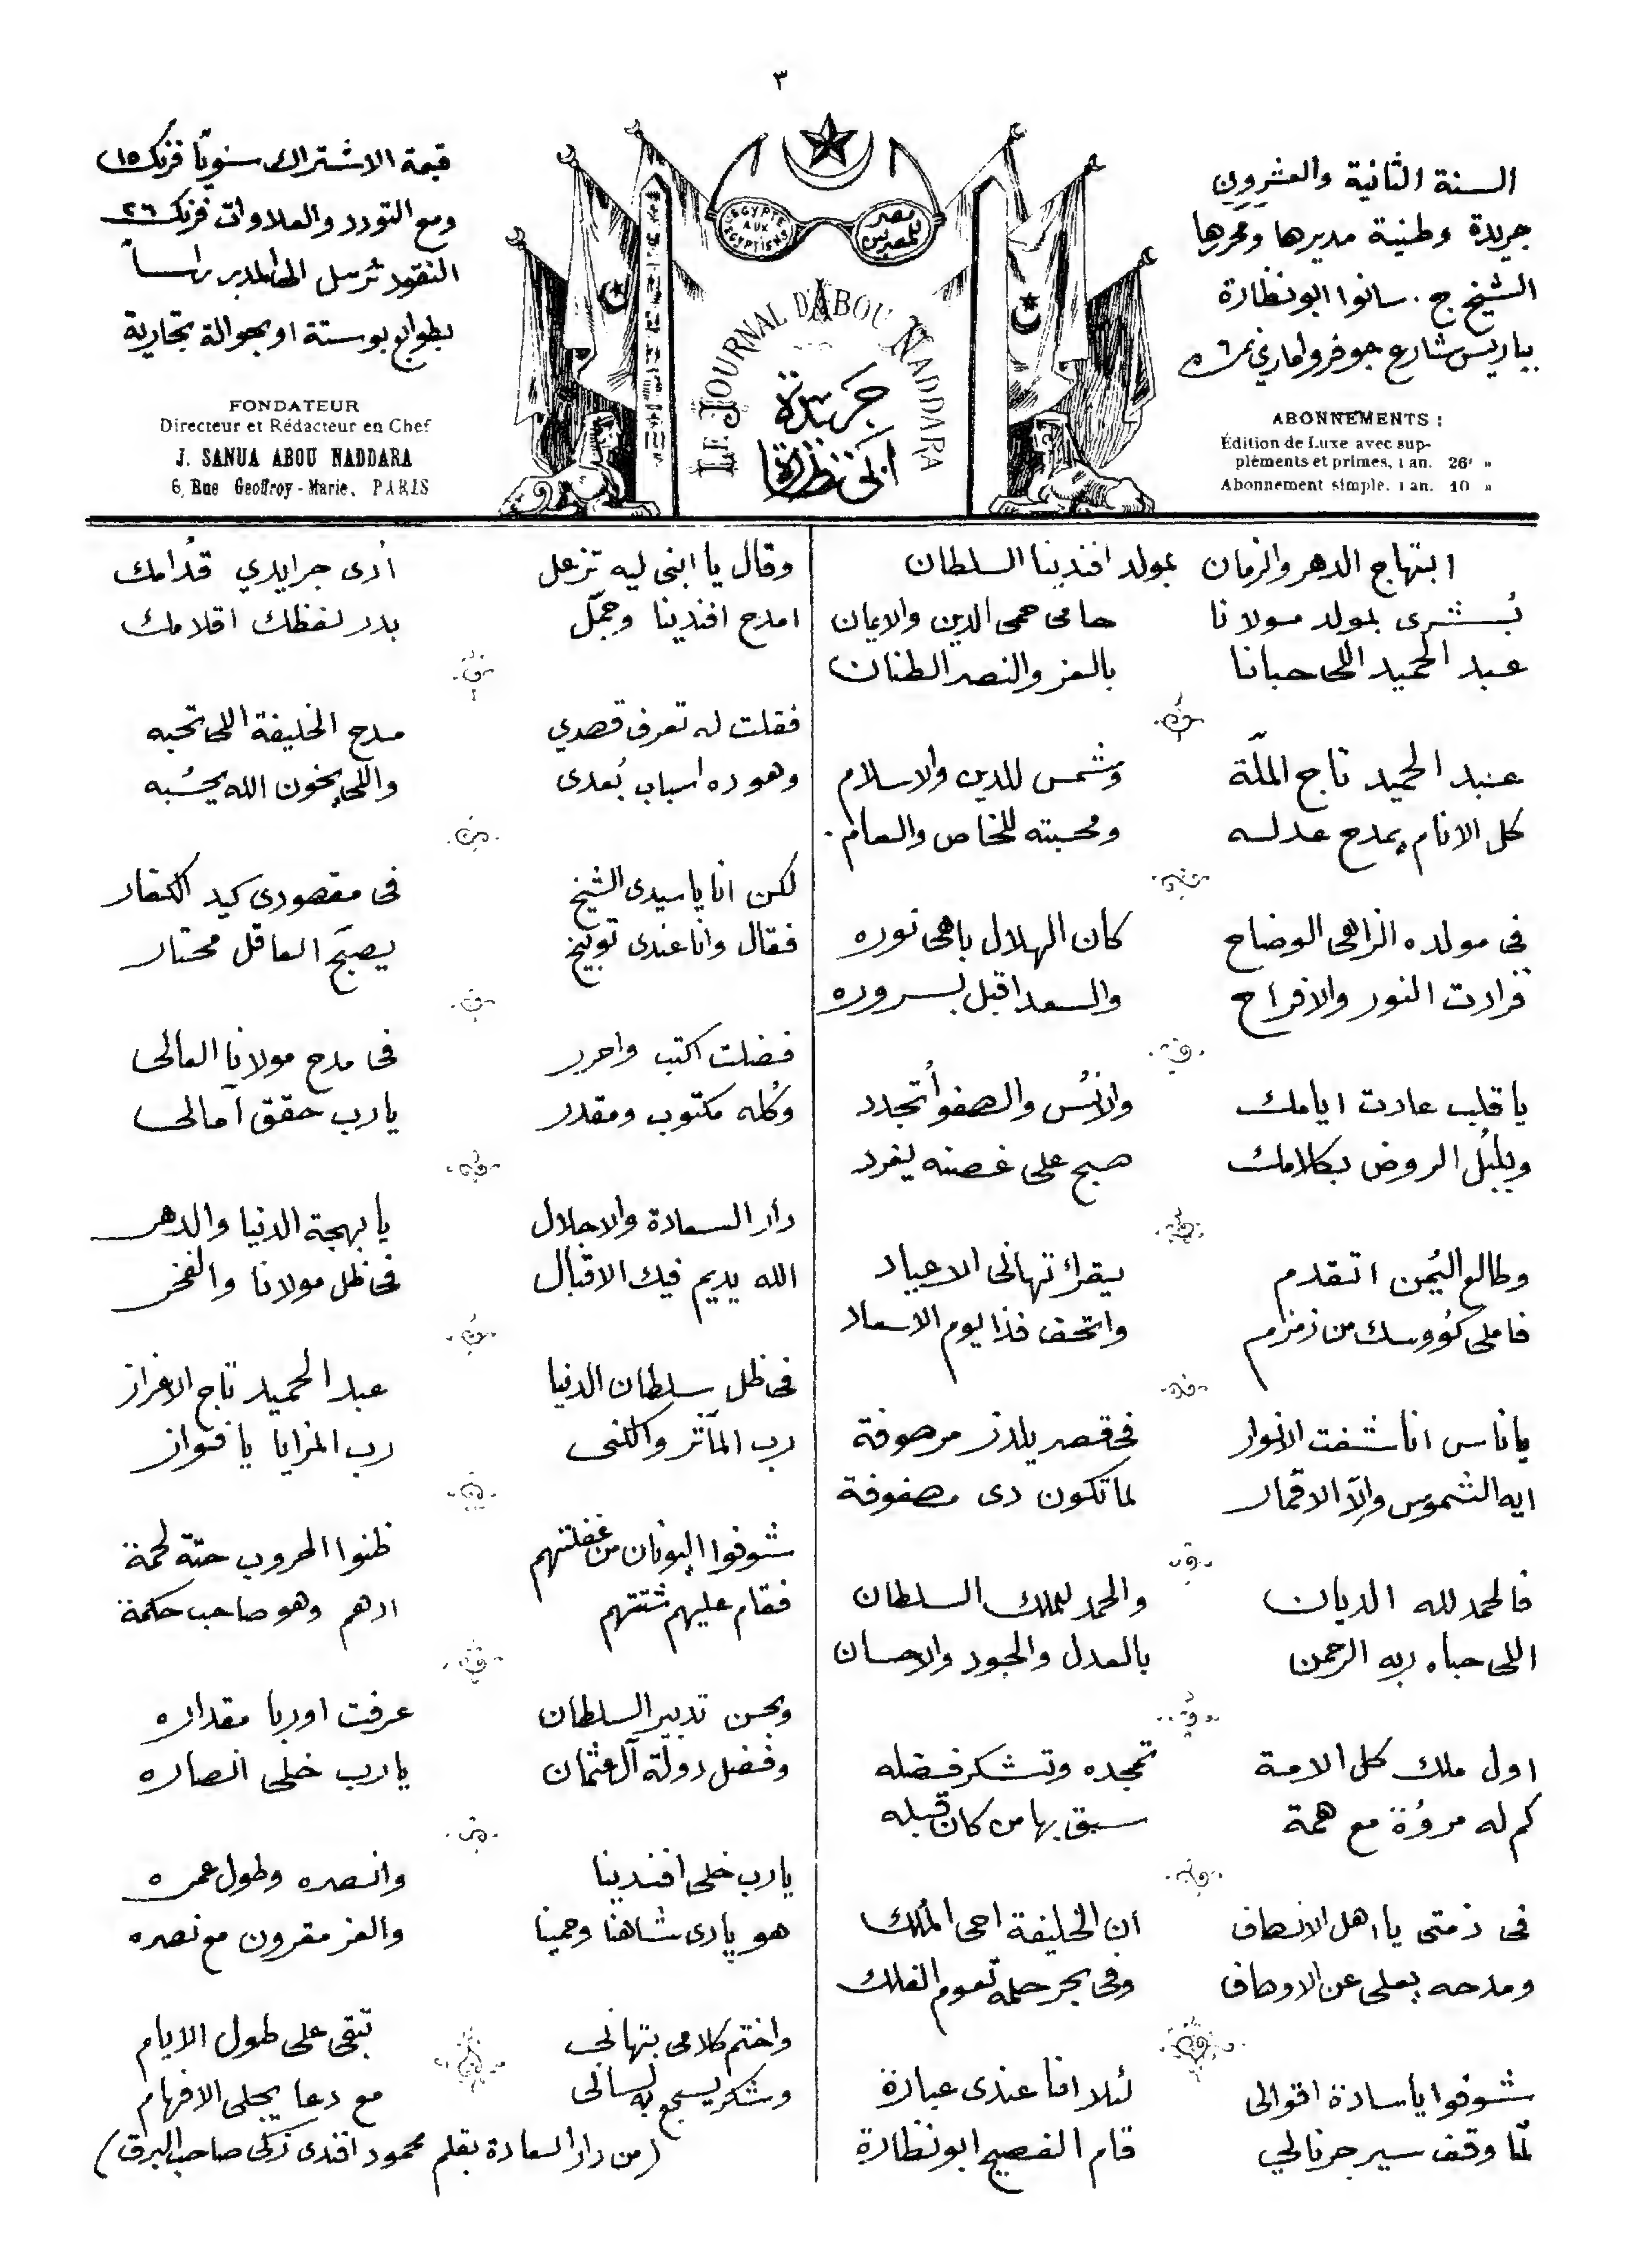 ٣
السنة الثانية والعشرون
جريدة وطنية مديرها ومحررها
الشيخ ج. سانوا ابو نظارة
بباريس شارع جوفروا ماري نمرة ٦
ABONNEMENTS :
Édition de Luxe avec sup-
pléments et primes, 1 an. 26f »
Abonnement simple. 1 an. 10 »
ÉGYPTE AUX EGYPTIENS
مصر للمصريين
LE JOURNAL D'ABOU NADDARA
جريدة
ابي نظارة
قيمة الاشتراك سنويًا فرنك ١٥
ومع التورد والعلاوات فرنك ٢٦
النقود تُرسل الى المدير راساً
بطوابع بوستة او بحوالة تجارية
FONDATEUR
Directeur et Rédacteur en Chef
J. SANUA ABOU NADDARA
6, Rue Geoffroy-Marie, PARIS
ابتهاج الدهر والزمان بمولد افندينا السلطان
بُشرى بمولد مولانا حامى حمى الدين والايمان
عبد الحميد اللى حبانا بالعز والنصر الطنان
عبد الحميد تاج الملّة وشمس للدين والاسلام
كل الانام يمدح عدله ومحبته للخاص والعام.
فى مولده الزاهى الوضاح كان الهلال باهى نوره
فزادت النور والافراح والسعد اقبل بسروره
يا قلب عادت ايامك والانُس والصفو أتجدد
وبلبُل الروض بكلامك صبح على غصنه يغرد
وطالع اليُمن اتقدم يقرا تهانى الاعياد
فاملى كؤوسك من زمزم واتحف فذا يوم الاسعاد
يا ناس انا شفت الانوار فى قصر يلدز مرصوفة
ايه الشموس والآ الاقمار لما تكون دى مصفوفة
فالحمد لله الديان والحمد للملك السلطان
اللى حباه ربه الرحمن بالعدل والجود والاحسان
اول ملك كل الامة تمجده وتشكر فضله
كم له مروُة مع همة سبق بها من كان قبله
فى ذمتى يا اهل الانصاف ان الخليفة احى المُلك
ومدحه يعلى عن الاوصاف وفى بحر حلمه تعوم الفلك
شوفوا يا سادة اقوالى لئلا انا عندى عبارة
لمّا وقف سير جرنالي قام الفصيح ابو نظارة
وقال يا ابنى ليه تزعل أدى جرايدي قدُامك
امدح افندينا وجمّل بدر لفظك اقلامك
فقلت له تعرف قصدي مدح الخليفة اللى تحبه
وهو ده اسباب بُعدى واللى يخون الله يحسُبه
لكن انا يا سيدى الشيخ فى مقصودى كيد الكفار
فقال وانا عندى توبيخ يصبّح العاقل محتار
فضلت اكتب واحرر فى مدح مولانا العالى
وكُله مكتوب ومقدر يارب حقق آمالى
دار السعادة والاجلال يا بهجة الدنيا والدهر
الله يديم فيك الاقبال فى ظل مولانا والفخر
فى ظل سلطان الدنيا عبد الحميد تاج الاعزاز
رب المآثر والكنى رب المزايا يا فواز
شوفوا اليونان من غفلتهم ظنوا الحروب حتة لحمة
فقام عليهم شتتهم ادهم وهو صاحب حكمة
وبحسن تدبير السلطان عرفت اوربا مقداره
وفضل دولة آل عثمان يارب خلى انصاره
يارب خلى افندينا وانصره وطول عمره
هو يا دى شاهنا وحمينا والعز مقرون مع نصره
واختم كلامى بتهانى تبقى على طول الايام
وشكر يسجع به لسانى مع دعا يجلى الافهام
(من دار السعادة بقلم محمود افندى زكى صاحب البرق)